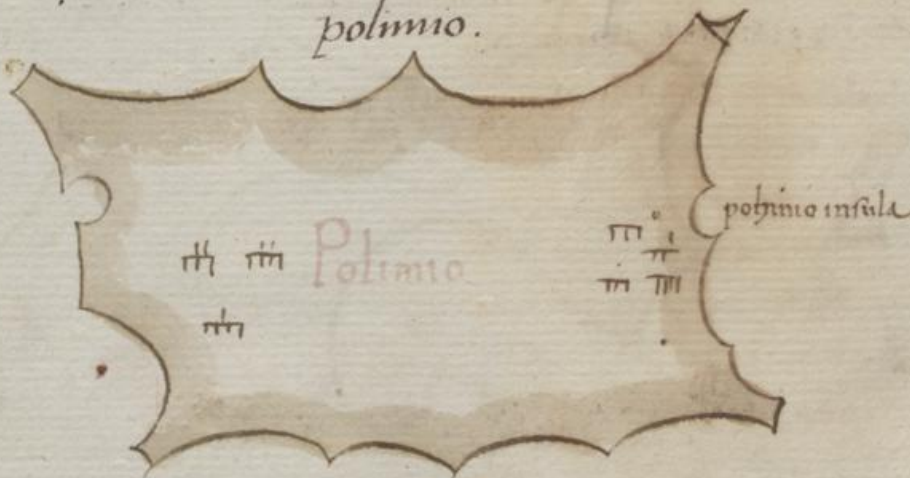 polimio.
Polimio
polimio insula